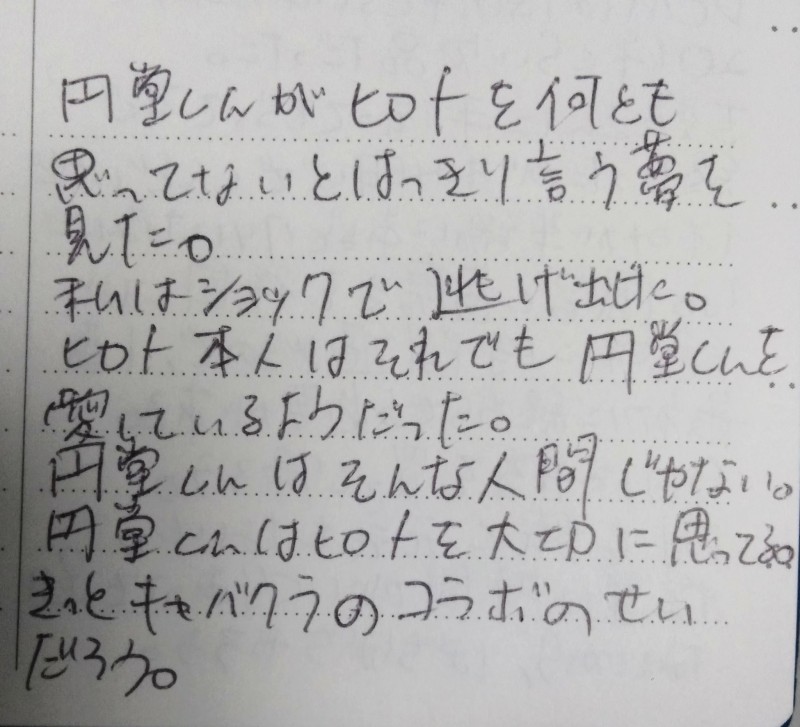 円堂くんがヒロトを何とも
思ってないとはっきり言う夢を
見た。
私はショックで逃げ出した。
ヒロト本人はそれでも円堂くんを
愛しているようだった。
円堂くんはそんな人間じゃない。
円堂くんはヒロトを大切に思ってる。
きっとキャバクラのコラボのせい
だろう。